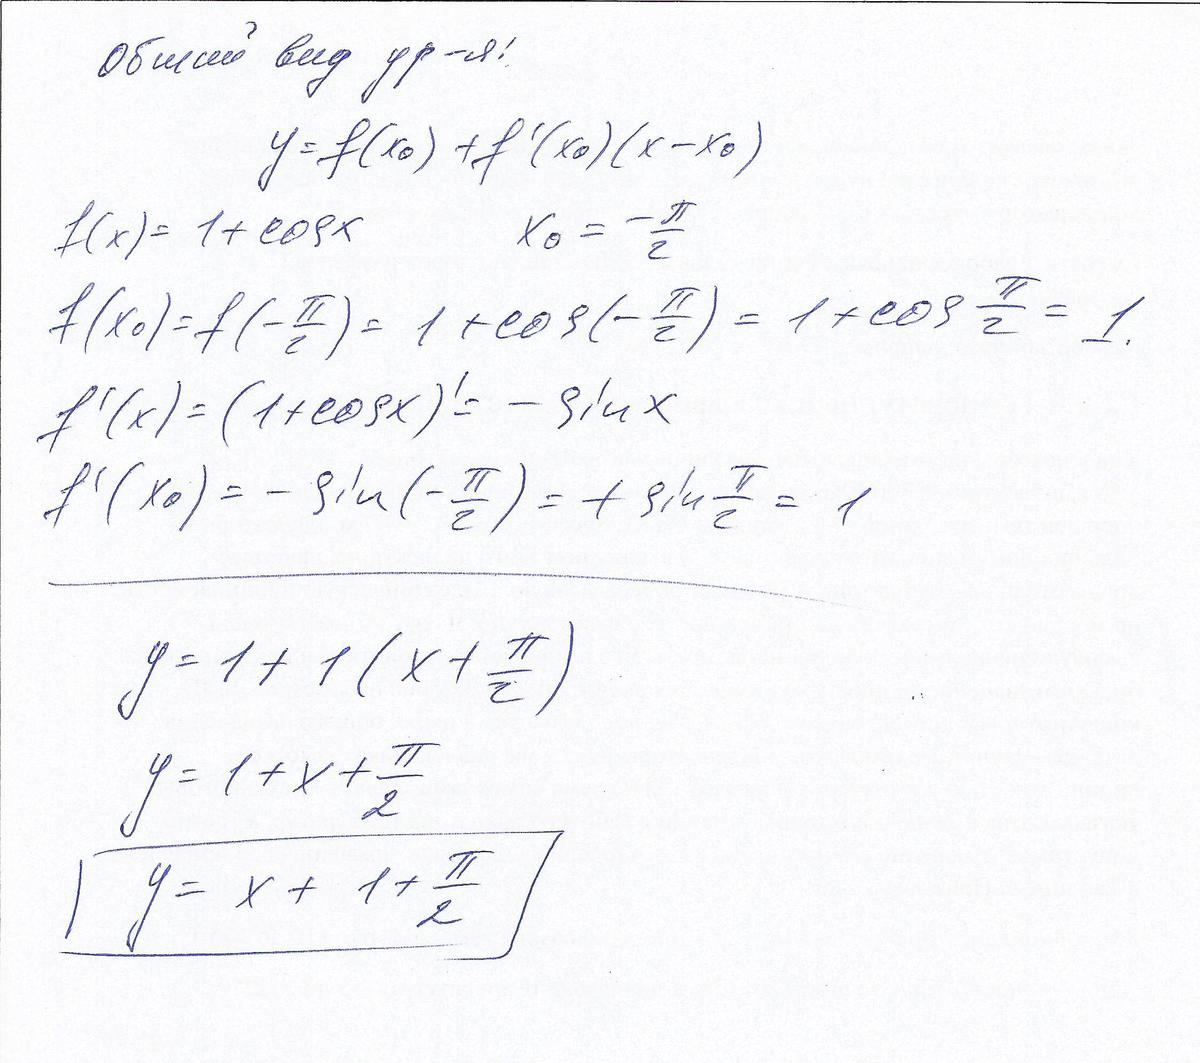 Общий вид ур-я:
y = f(x₀) + f'(x₀)(x - x₀)
f(x) = 1 + cosx x₀ = -π/2
f(x₀) = f(-π/2) = 1 + cos(-π/2) = 1 + cos π/2 = 1.
f'(x) = (1 + cosx)' = - sin x
f'(x₀) = - sin(-π/2) = + sin π/2 = 1
y = 1 + 1(x + π/2)
y = 1 + x + π/2
y = x + 1 + π/2